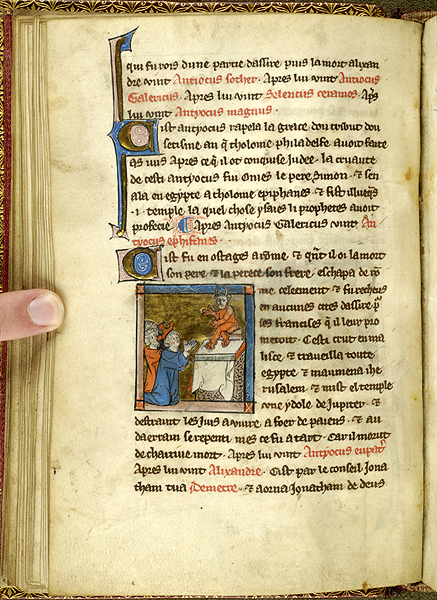 qui fu rois dune partie dassire puis la mort alixan
dre vint Antiocus sother. Apres lui vint Antiocus
Galericus. Apres lui vint Selencus ceramos. Aps
lui vint Antyocus magnus.
ist antyocus rapela la grace dou treut dou
setisme an q̃ tholome philadelfe avoit faite
as iuis apres ce q̃ il ot conquise Judee. la cruaute
de cest antyocus fui Onies le pere Simon. & sen
ala en egypte a tholome epiphanes. & fist illueq̃s
.i. temple. la quel chose ysaies li prophetes avoit
profecie. Apres antyocus Galericus vint An
tyocus ephifanes.
ist fu en ostages a rome. & qñt il oi la mort
son pere & la perece son frere. eschapa de ro
me celeement. & fu recheus
en aucunes cites dassire p̱
ses francises q̃ il leur pro
metoit. Cest crut en ma
lisce. & travella toute
egypte & maumena ihe
rusalem. & mist el temple
une ydole de Jupiter. &
destraint les Juis a vivre a foer de paiens. & au
daerrain se repenti mes ce fu a tart. Car il morut
de chaitive mort. Apres lui vint Antyocus eupat
Apres lui vint Alixandre. Cist par le conseil Jona
tham tua Demetre. & aorna Jonatham de deus